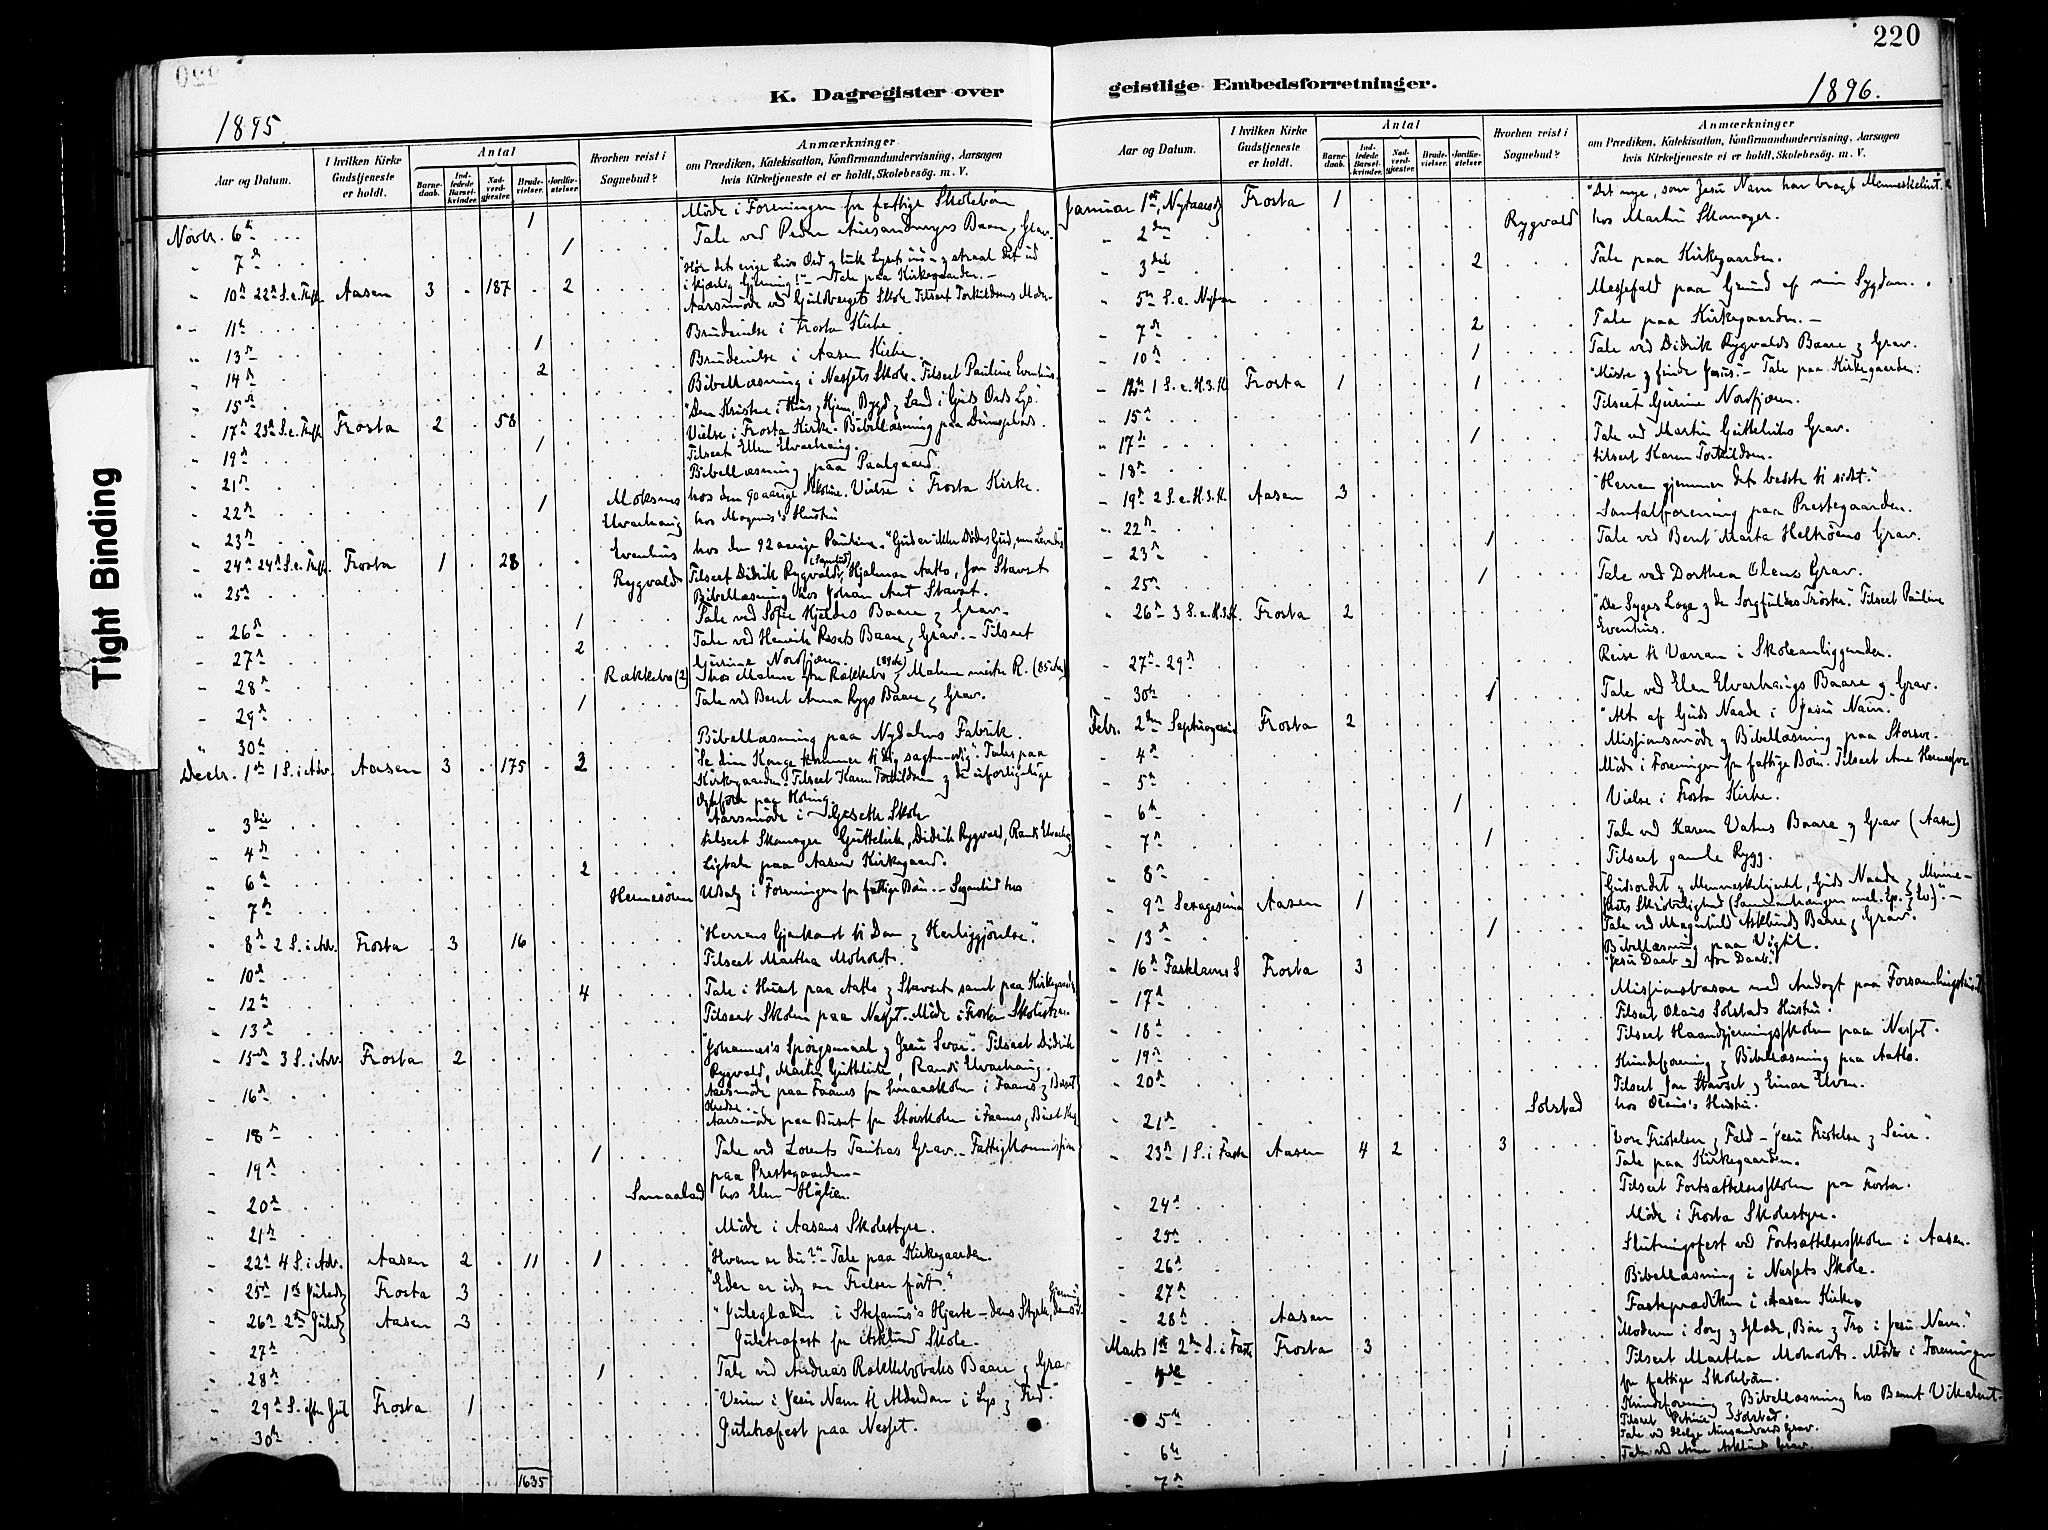 220
K. Dagregister over
geistlige Embedsforretninger.
1895.
1896.
Tight Binding
Aar og Datum.
I hvilken Kirke Gudstjeneste er holdt.
Antal
Barnedaab.
Indledede Barselkvinder.
Nadverdgjester.
Brudevielser.
Jordfæstelser
Hvorhen reist i Sognebud?
Anmærkninger
om Prædiken, Katekisation, Konfirmandundervisning, Aarsagen
hvis Kirketjeneste ei er holdt, Skolebesøg. m. V.
Novbr. 6te 1 Møde i Foreningen for fattige Skolebørn
" 7de 1 Tale ved Peder Baare & Grav.
"Hør det evige Livs Ord & luk Lyset ind - & straal det ud
" 10de 22de S. e. Tref. Aasen 3 187 2 i kjærlig Gjerning!" - Tale paa Kirkegaarden. -
" 11te Aarsmøde ved Skole. Tilseet Torkildsens Moder
" 13de 1 Brudevielse i Frosta Kirke
" 14de 2 Brudevielse i Aasen Kirke.
" 15de Bibellæsning i Nessets Skole. Tilseet Pauline Evenhus.
" 17de 23de S. e. Tref. Frosta 2 58 "Den Kristne i Hus & Hjem, Bygd & Land i Guds Ords Lys."
" 19de 1 Vielse i Frosta Kirke. Bibellæsning paa
Tilseet Ellen Elvarhaug.
" 21de Bibellæsning paa Paalgaard.
" 22de 1 Moksnes hos den 90 aarige Nikoline. Vielse i Frosta Kirke.
" 23de Elvarhaug hos Magnus's Hustru
" 24de 24de S. e. Tref. Frosta 1 28 Evenhus hos den 92 aarige Pauline. "Gud er ikke Dødes Gud, men Levendes
" 25de Rygvald Tilseet Didrik Rygvald, Hjalmar Aatlo, Jon Stavset
Bibellæsning hos Johan Stavset.
" 26de 1 Tale ved Sofie Hjeldes Baare & Grav.
" 27de 2 Tale ved Henrik Baare & Grav. - Tilseet
Gurine Nordfjæren.
" 28de Rækkebo (2) hos Malene Rækkebo & Malene R. (85
" 29de 1 Tale ved Berit Anna Ryggs Baare & Grav.
" 30te Bibellæsning paa Nydalens Fabrik.
Decbr. 1ste 1 S. i Adv. Aasen 3 175 2 "Se din Konge kommer til dig sagtmodig". Tale paa
Kirkegaarden. Tilseet Karen Torkildsen & de uforligelige
paa Høling.
" 3die Aarsmøde i Skole
" 4de Tilseet Skomager Guttelvik, Didrik Rygvald, Randi Elvarhaug
" 6te 2 Ligtale paa Aasens Kirkegaard.
" 7de Hernesøren Udsalg i Foreningen for fattige Børn. - Sognebud hos
" 8de 2 S. i Adv. Frosta 3 16 "Herrens Gjenkomst til Dom & Herliggjørelse."
" 10de Tilseet Martha Moholdt.
" 12te 4 Tale i Huset paa Aatlo & Stavset samt paa Kirkegaarden
" 13de Tilseet Skolen paa Nesset. Møde i Frosta Skolestyre.
" 15de 3 S. i Adv. Frosta 2 "Johannes's Spørgsmaal & Jesu Svar". Tilseet Didrik
Rygvald, Martin Guttelvik, Randi Elvarhaug.
" 16de Aarsmøde paa Faanes for Smaaskolen i Faanes & Buset
Kreds
" 18de Aarsmøde paa Buset for Storskolen i Faanes & Buset
" 19de 1 Tale ved Lorents Tautras Grav. - Fattigkommission
paa Prestegaarden.
" 20de Smaaland hos Elen Høglien.
" 21de Møde i Aasens Skolestyre.
" 22de 4 S. i Adv. Aasen 2 11 1 "Hvem er du?" - Tale paa Kirkegaarden.
" 25de 1ste Juledag Frosta 3 "Eder er idag en Frelser født."
" 26de 2den Juledag Aasen 3 "Juleglæden i Stefanus's Hjerte - dens Styrke,
" 27de Juletræfest for Asklund Skole.
" 28de 1 Tale ved Andreas Baare & Grav
" 29de S. efter Jul Frosta 1 "Veien i Jesu Navn til Alderdom i Lys & Fred".
" 30te Juletræfest paa Nesset.
1635
Aar og Datum.
I hvilken Kirke Gudstjeneste er holdt.
Antal
Barnedaab.
Indledede Barselkvinder.
Nadverdgjester.
Brudevielser.
Jordfæstelser
Hvorhen reist i Sognebud?
Anmærkninger
om Prædiken, Katekisation, Konfirmandundervisning, Aarsagen
hvis Kirketjeneste ei er holdt, Skolebesøg. m. V.
Januar 1ste, Nytaarsdag Frosta 1 "Det nye, som Jesu Navn har bragt Menneskelivet."
" 2den Rygvald hos Martin Skomager.
" 3die 2 Tale paa Kirkegaarden.
" 5te S. e. Nytaar Messefald paa Grund af min Sygdom.
" 7de 2 Tale paa Kirkegaarden. -
" 10de 1 Tale ved Didrik Rygvalds Baare & Grav.
" 12te 1 S. e. H. 3. K. Frosta 1 1 "Miste & finde Jesus". - Tale paa Kirkegaarden.
" 15de Tilseet Gurine Nordfjæren.
" 17de 1 Tale ved Martin Guttelviks Grav.
" 18de Tilseet Karen Torkildsen.
" 19de 2 S. e. H. 3. K. Aasen 3 "Herren gjemmer det bedste til sidst."
" 22de Santalforening paa Prestegaarden.
" 23de 1 Tale ved Berit Marta Grav.
" 25de 1 Tale ved Dorthea Olens Grav.
" 26de 3 S. e. H. 3. K. Frosta 2 "De Syges Læge & de Sorgfuldes Trøster." Tilseet Pauline
Evenhus.
" 27de-29de Reise til Værran i Skoleanliggender.
" 30te 1 Tale ved Elen Elvarhaugs Baare & Grav.
Febr. 2den Septuagesima Frosta 2 "Alt af Guds Naade i Jesu Navn.
" 4de Missionsmøde & Bibellæsning paa
" 5te Møde i Foreningen for fattige Børn. Tilseet Ane
" 6te 1 Vielse i Frosta Kirke.
" 7de 1 Tale ved Karen Vatnes Baare & Grav (Aasen)
" 8de Tilseet gamle Rygg.
" 9de Sexagesima Aasen 1 "Gudsordet & Menneskehjertet, Guds Naade & Menne-
skets Skrøbelighed (Sammenhængen mel. Ep. & Ev)". -
" 13de 1 Tale ved Magnhild Asklunds Baare & Grav.
Bibellæsning paa Vigtil.
" 16de Fastelavns S Frosta 3 "Jesu Daab & vor Daab."
" 17de Missionsbasar med Andagt paa Forsamlingshuset
" 18de Tilseet Olaus Solstads Hustru.
" 19de Tilseet Haandgjerningsskolen paa Nesset.
" 20de Kvindeforening & Bibellæsning paa Aatlo.
Tilseet Jon Stavset & Einar Elven.
" 21de Solstad hos Olaus's Hustru.
" 23de 1 S. i Faste Aasen 4 2 3 "Vore Fristelser & Fald - Jesu Fristelse & Seier".
Tale paa Kirkegaarden.
" 24de Tilseet Fortsættelsesskolen paa Frosta.
" 25de Møde i Frosta Skolestyre.
" 26de Slutningsfest ved Fortsættelsesskolen i Aasen.
" 27de Bibellæsning i Nessets Skole.
" 28de Aasen Fasteprædiken i Aasen Kirke
Marts 1ste 2den S. i Faste Frosta 3 "Moderen i Sorg & Glæde, Bøn & Tro i Jesu Navn."
Tilseet Martha Moholdt. Møde i Foreningen
for fattige Skolebørn.
" 5te Kvindeforening & Bibellæsning hos Bernt
Tilseet Petrine Solstad.
" 6te 1 Tale ved Helge Grav.
" 7de 1 Tale ved Anne Asklund Grav